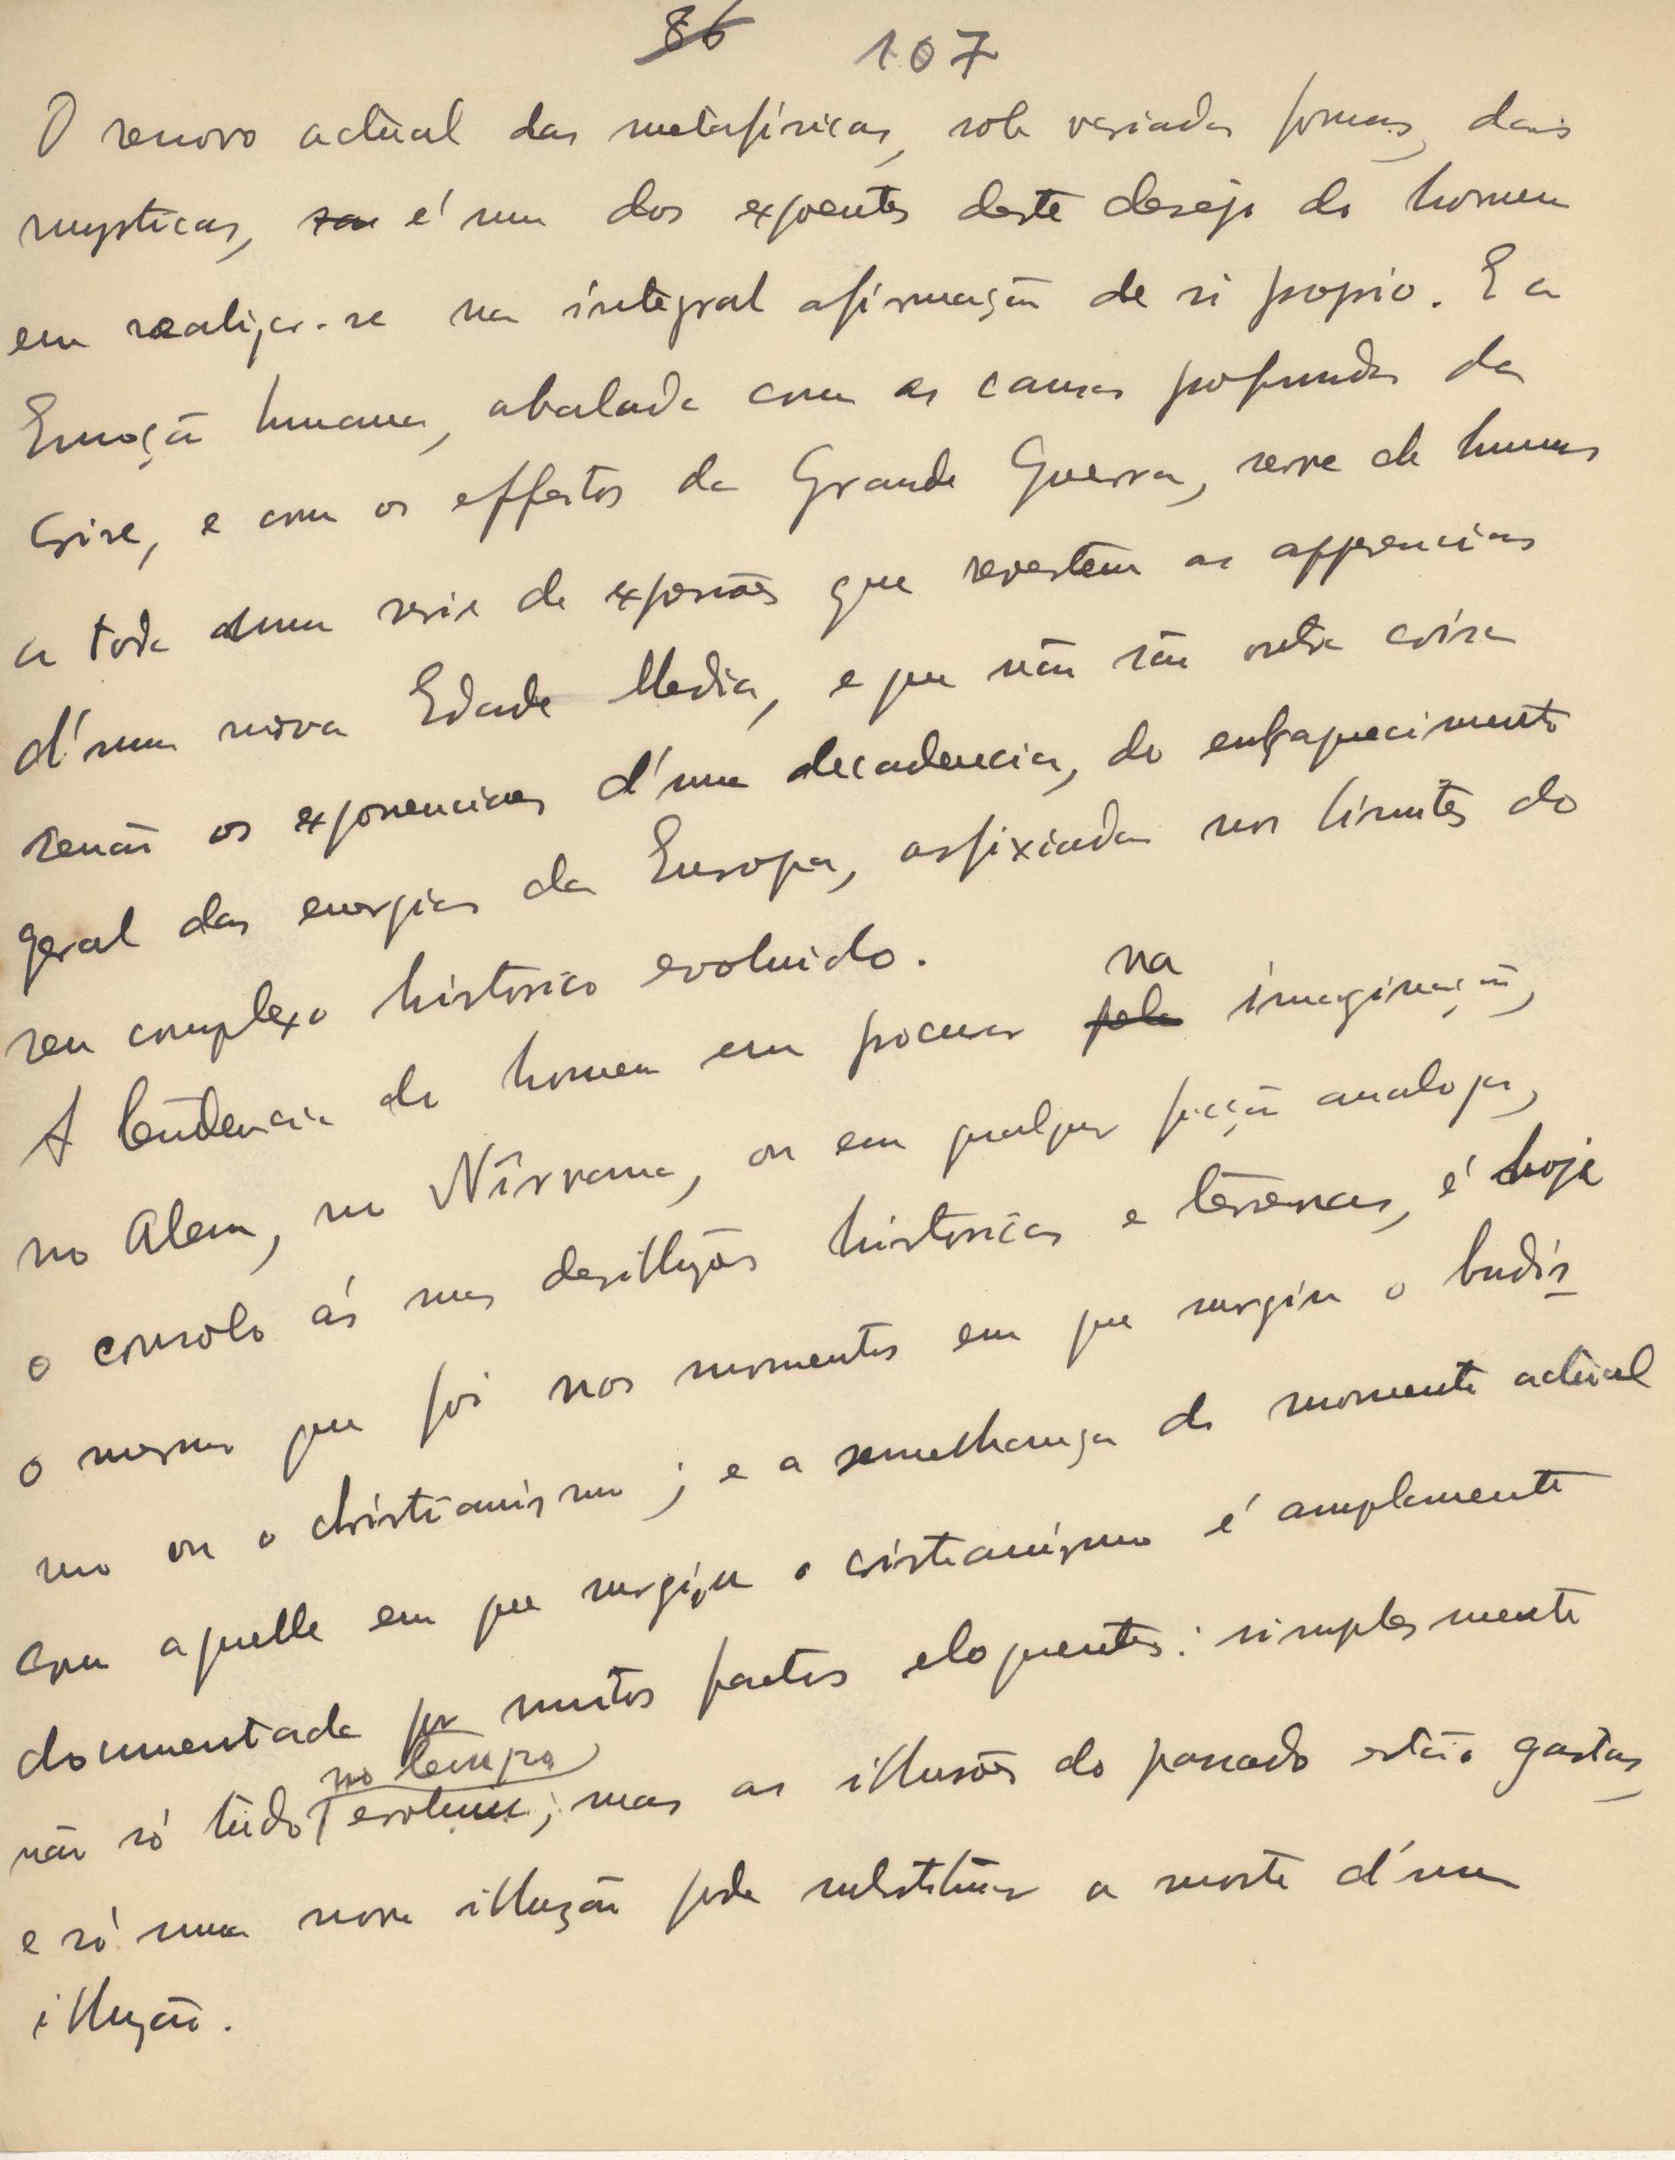 86 107
O renovo actual das metafisicas, sob variadas formas, dais
mysticas, é um dos expoentes deste desejo do homem
em realizar-se na integral afirmação de si proprio. E a
Emoção humana, abalada com as causas profundas da
Crise, e com os effeitos da Grande Guerra, serve de humus
a toda uma serie de expansões que revestem as apparencias
d'uma nova Edade Media, e que não são outra coisa
senão os exponenciaes d'uma decadencia, do enfraquecimento
geral das energias da Europa, asfixiada nos limites do
seu complexo historico evoluido.
A tendencia do homem em procurar na imaginação,
no Alem, no Nirvana, ou em qualquer ficção analoga,
o consolo ás suas desilluzões historicas e terrenas, é hoje
o mesmo que foi nos momentos em que surgiu o budis
mo ou o christianismo; e a semelhança do momento actual
com aquelle em que surgiu o cristianismo é amplamente
documentada por muitos factos eloquentes: simplesmente
não só tudo no tempo evoluiu; mas as illusões do passado estão gastas
e só uma nova illuzão pode substituir a morte d'uma
illuzão.